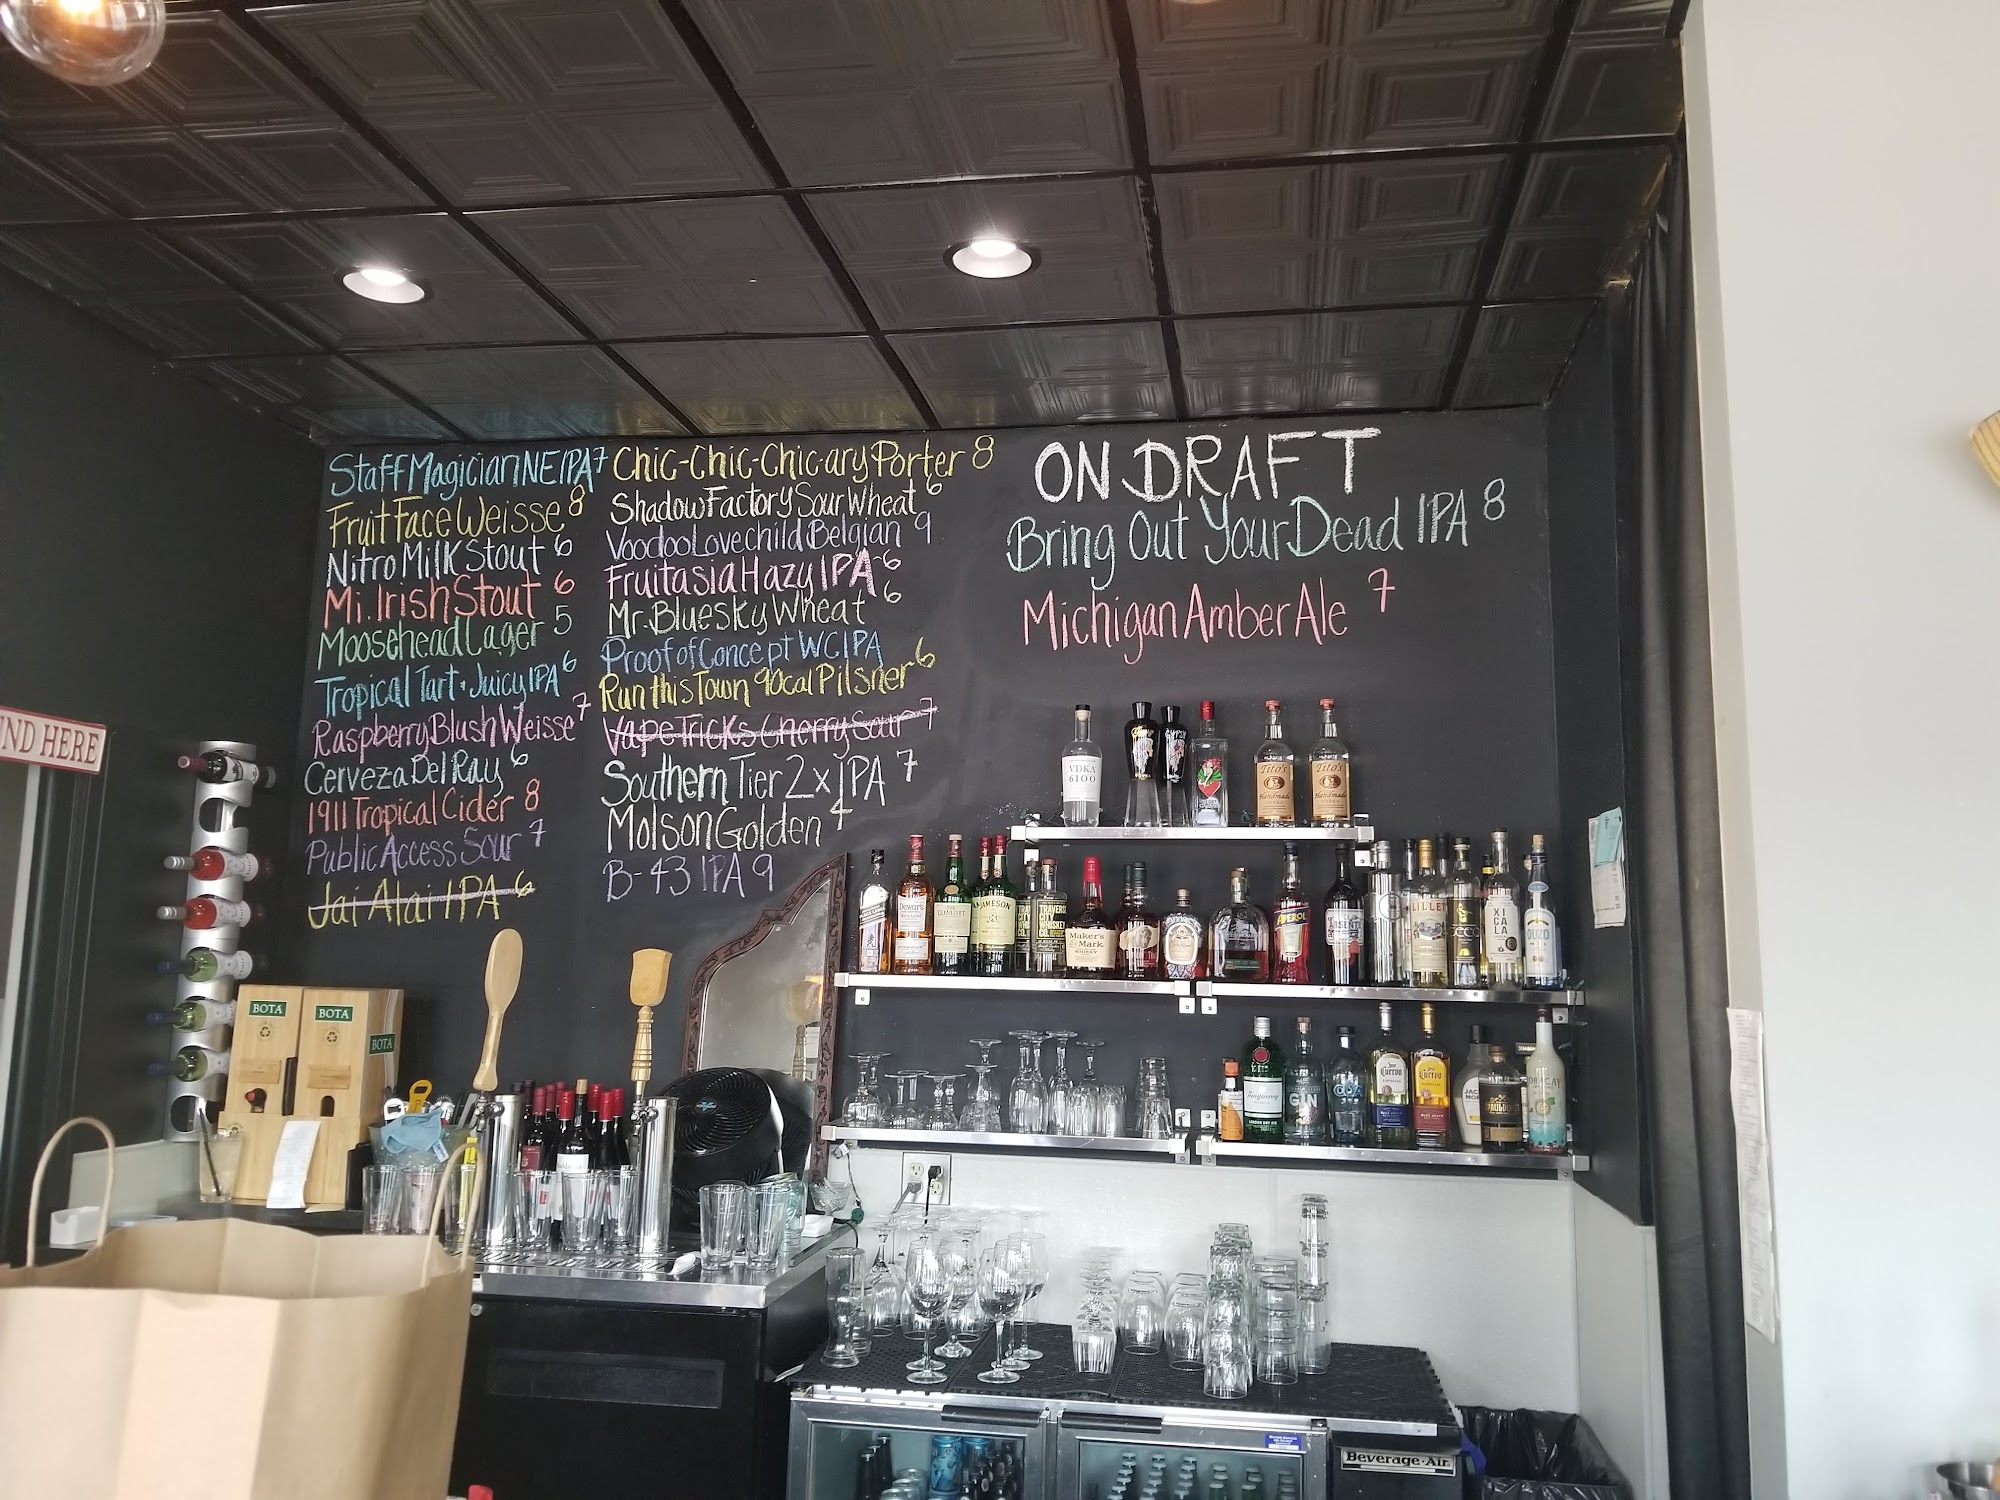 Staff Magician NE IPA 7
Fruit Face Weisse 8
Nitro Milk Stout 6
Mi. Irish Stout 6
Moosehead Lager 5
Tropical Tart + Juicy IPA 6
Raspberry Blush Weisse 7
Cerveza Del Ray 6
1911 Tropical Cider 8
Public Access Sour 7
Jai Alai IPA 6
Chic-Chic-Chic-ary Porter 8
Shadow Factory Sour Wheat 6
Voodoo Lovechild Belgian 9
Fruitasia Hazy IPA 6
Mr. Bluesky Wheat 6
Proof of Concept WC IPA
Run this Town 90cal Pilsner 6
Vape Tricks Cherry Sour 7
Southern Tier 2x IPA 7
Molson Golden 4
B-43 IPA 9
ON DRAFT
Bring Out Your Dead IPA 8
Michigan Amber Ale 7
ND HERE
VDKA
6100
Tito's
Handmade
Tito's
Handmade
Dewar's
JAMESON
Maker's
Mark
APEROL
LILLET
XICALA
OUZO
BOTA
BOTA
BOTA
Tanqueray
GIN
Jose
Cuervo
ESPECIAL
Jose
Cuervo
ESPECIAL
Beverage-Air